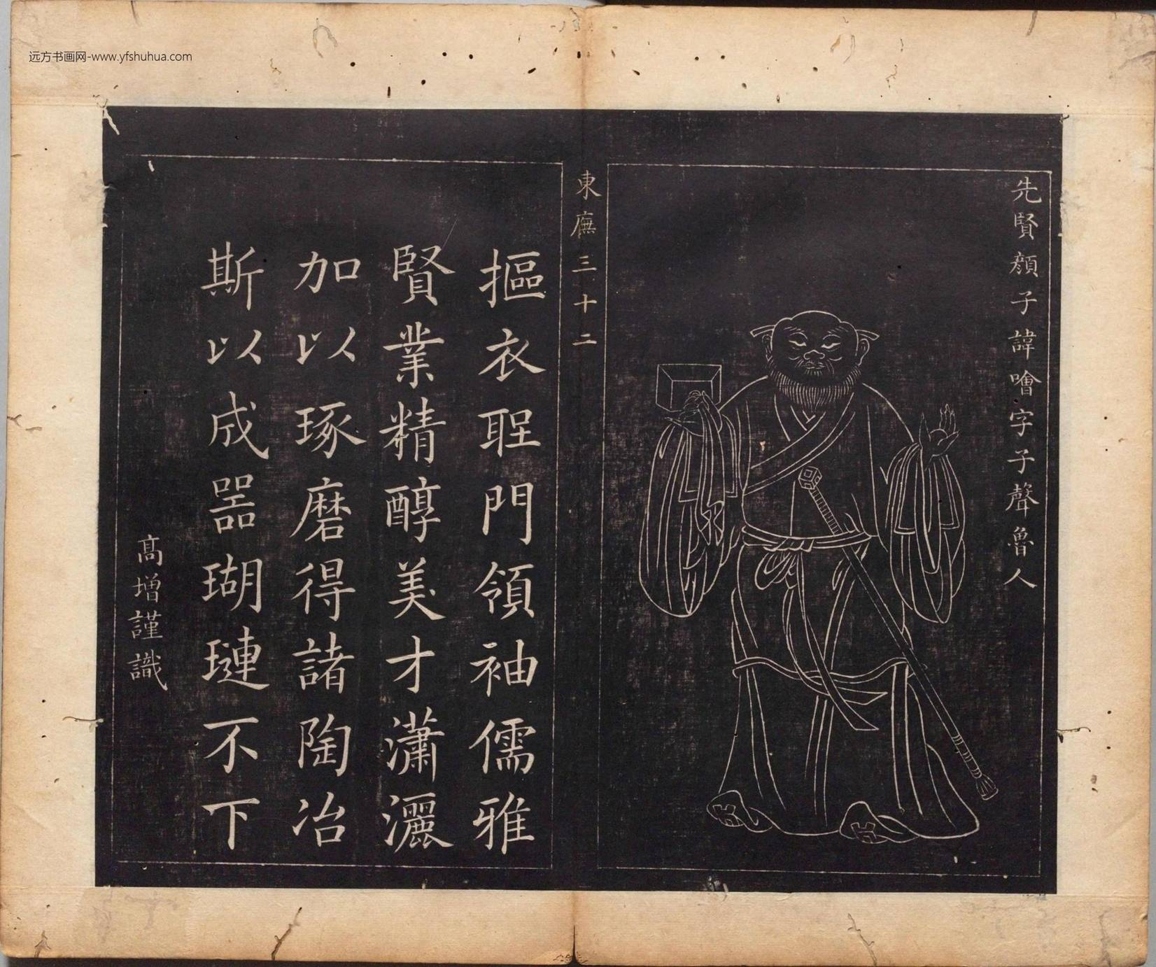 远方书画网-www.yfshuhua.com
先賢顏子諱噲字子聲魯人
東廡三十二
摳衣聖門領袖儒雅
賢業精醇美才瀟灑
加以琢磨得諸陶冶
斯以成器瑚璉不下
高增謹識